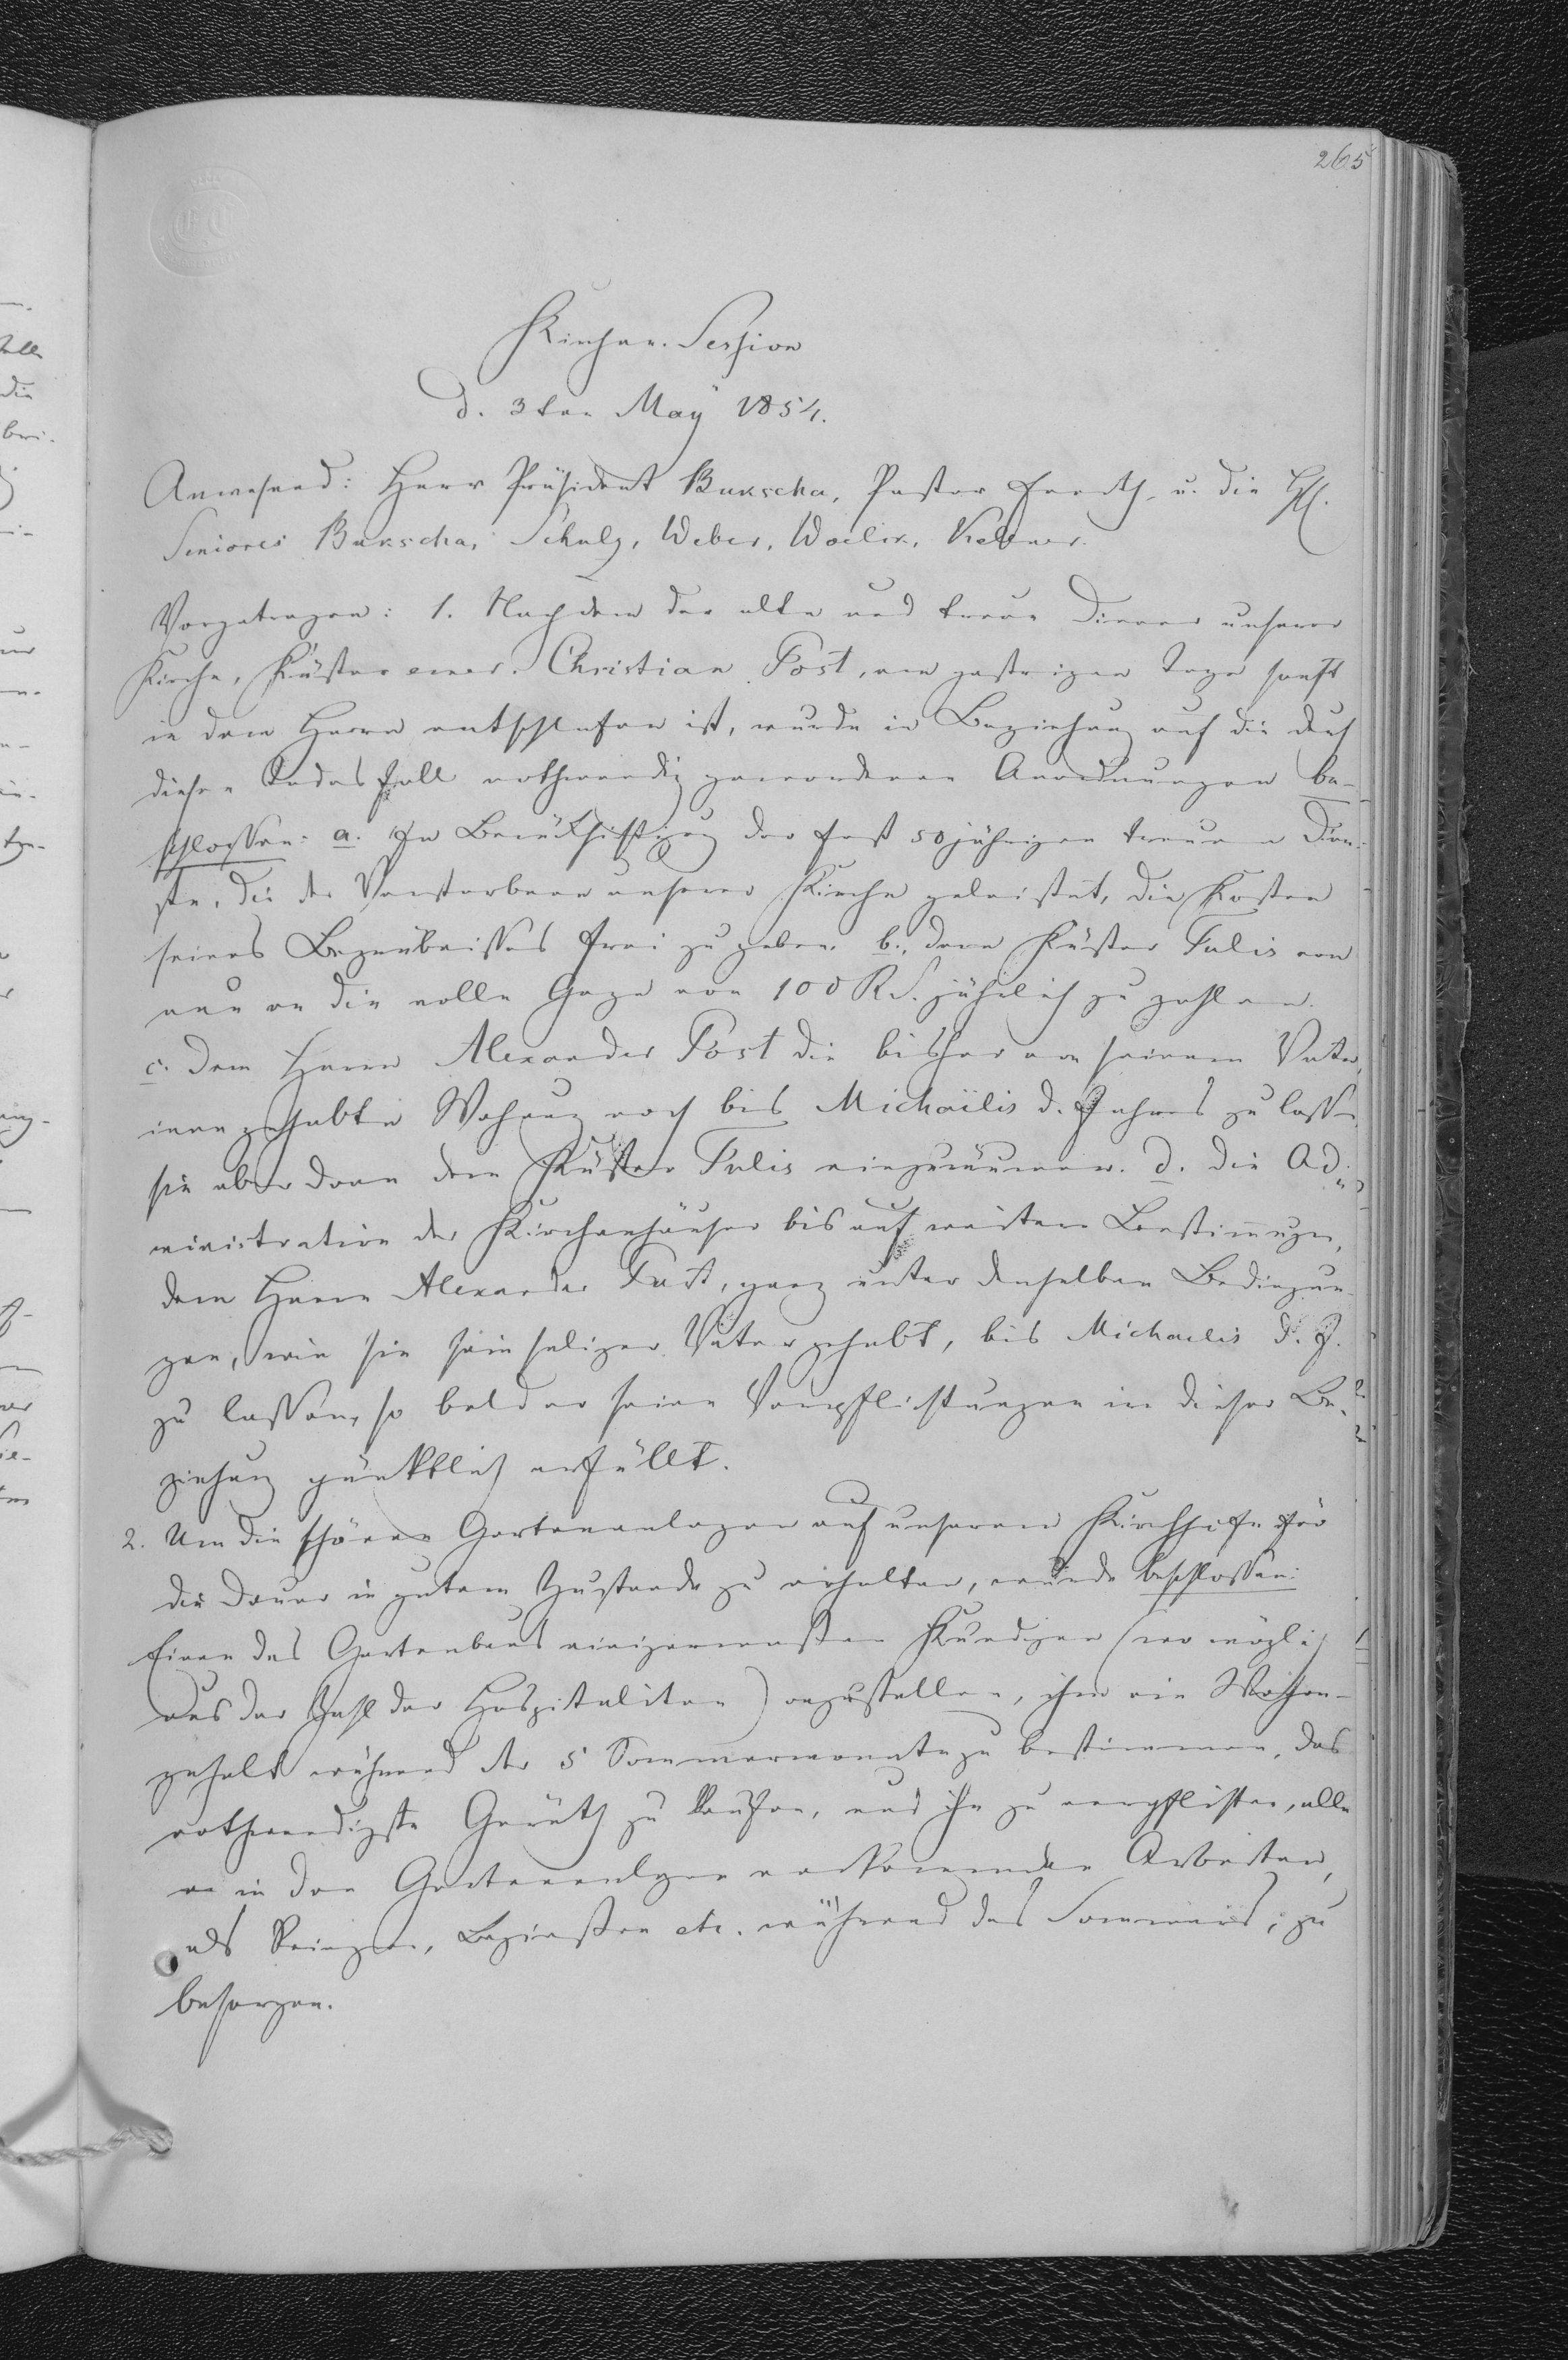 265
Kirchen-Session
d. 3ten May 1854.
Anwesend: Herr Präsident Bukscha, Pastor u. die HH.
Seniores Bakscha, Schulz, Weber, Woelix,
Vorgetragen: 1. Nachdem der alte und treue Diener unserer
Kirche, Küster emer. Christian Post, am gestrigen Tage sanft
in dem Herrn entschlafen ist, wurde in Beziehung auf die durch
diesen Todesfall nothwendig gewordenen Anordnungen be-
schlossen: a. In Berücksichtigung der fast 50jährigen treuen Dien-
ste, die der Verstorbene unserer Kirche geleistet, die Kosten
seines Begräbnisses frei zu geben. b., dem Küster Tulis von
nun an die volle Gage von 100 R.S. jährlich zu zahlen.
c. Dem Herrn Alexander Post die bisher von seinem Vater
innegehabte Wohnung noch bis Michaëlis d. Jahres zu lassen
sie aber dann dem Küster Tulis einzuräumen. d. die Ad-
ministration der Kirchenhäuser bis auf weitere Bestimmungen,
dem Herrn Alexander Post, ganz unter denselben Bedingun-
gen, wie sie sein seliger Vater gehabt, bis Michaelis d. J.
zu lassen, so bald er seine Verpflichtungen in dieser Be-
ziehung pünktlich erfüllt.
2. Um die schönen Gartenanlagen auf unserem Kirchhofe für
die Dauer in gutem Zustande zu erhalten, wurde beschlossen:
Einen des Gartenbaus einigermassen Kundigen (wo möglich
aus der Zahl der Hospitaliten) anzustellen, ihm ein Wochen-
gehalt während der 5 Sommermonate zu bestimmen, das
nothwendigste Geräth zu kaufen, und ihn zu verpflichten, alle
in den Gartenanlagen vorkommenden Arbeiten,
als Reinigen, Begiessen etc. während des Sommers, zu
besorgen.